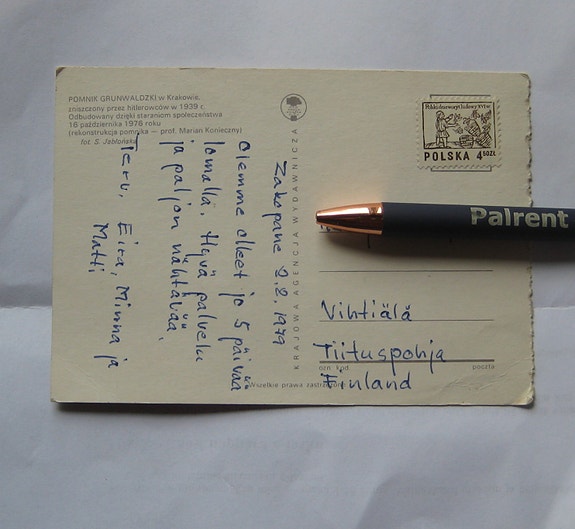 POMNIK GRUNWALDZKI w Krakowie,
zniszczony przez hitlerowców w 1939 r.
Odbudowany dzięki staraniom społeczeństwa
16 października 1976 roku
(rekonstrukcja pomnika — prof. Marian Konieczny)
fot. S. Jabłońska
Zakopane 2.8.1979
Olemme olleet jo 5 päivää
lomalla. Hyvä palvelu
ja paljon nähtävää.
Terv. Eira, Minna ja
Matti
KRAJOWA AGENCJA WYDAWNICZA
POLSKA 4 50 ZŁ
Palrent
Vihtiälä
Tiituspohja
Finland
ozn kod
poczta
Wszelkie prawa zastrzeżone